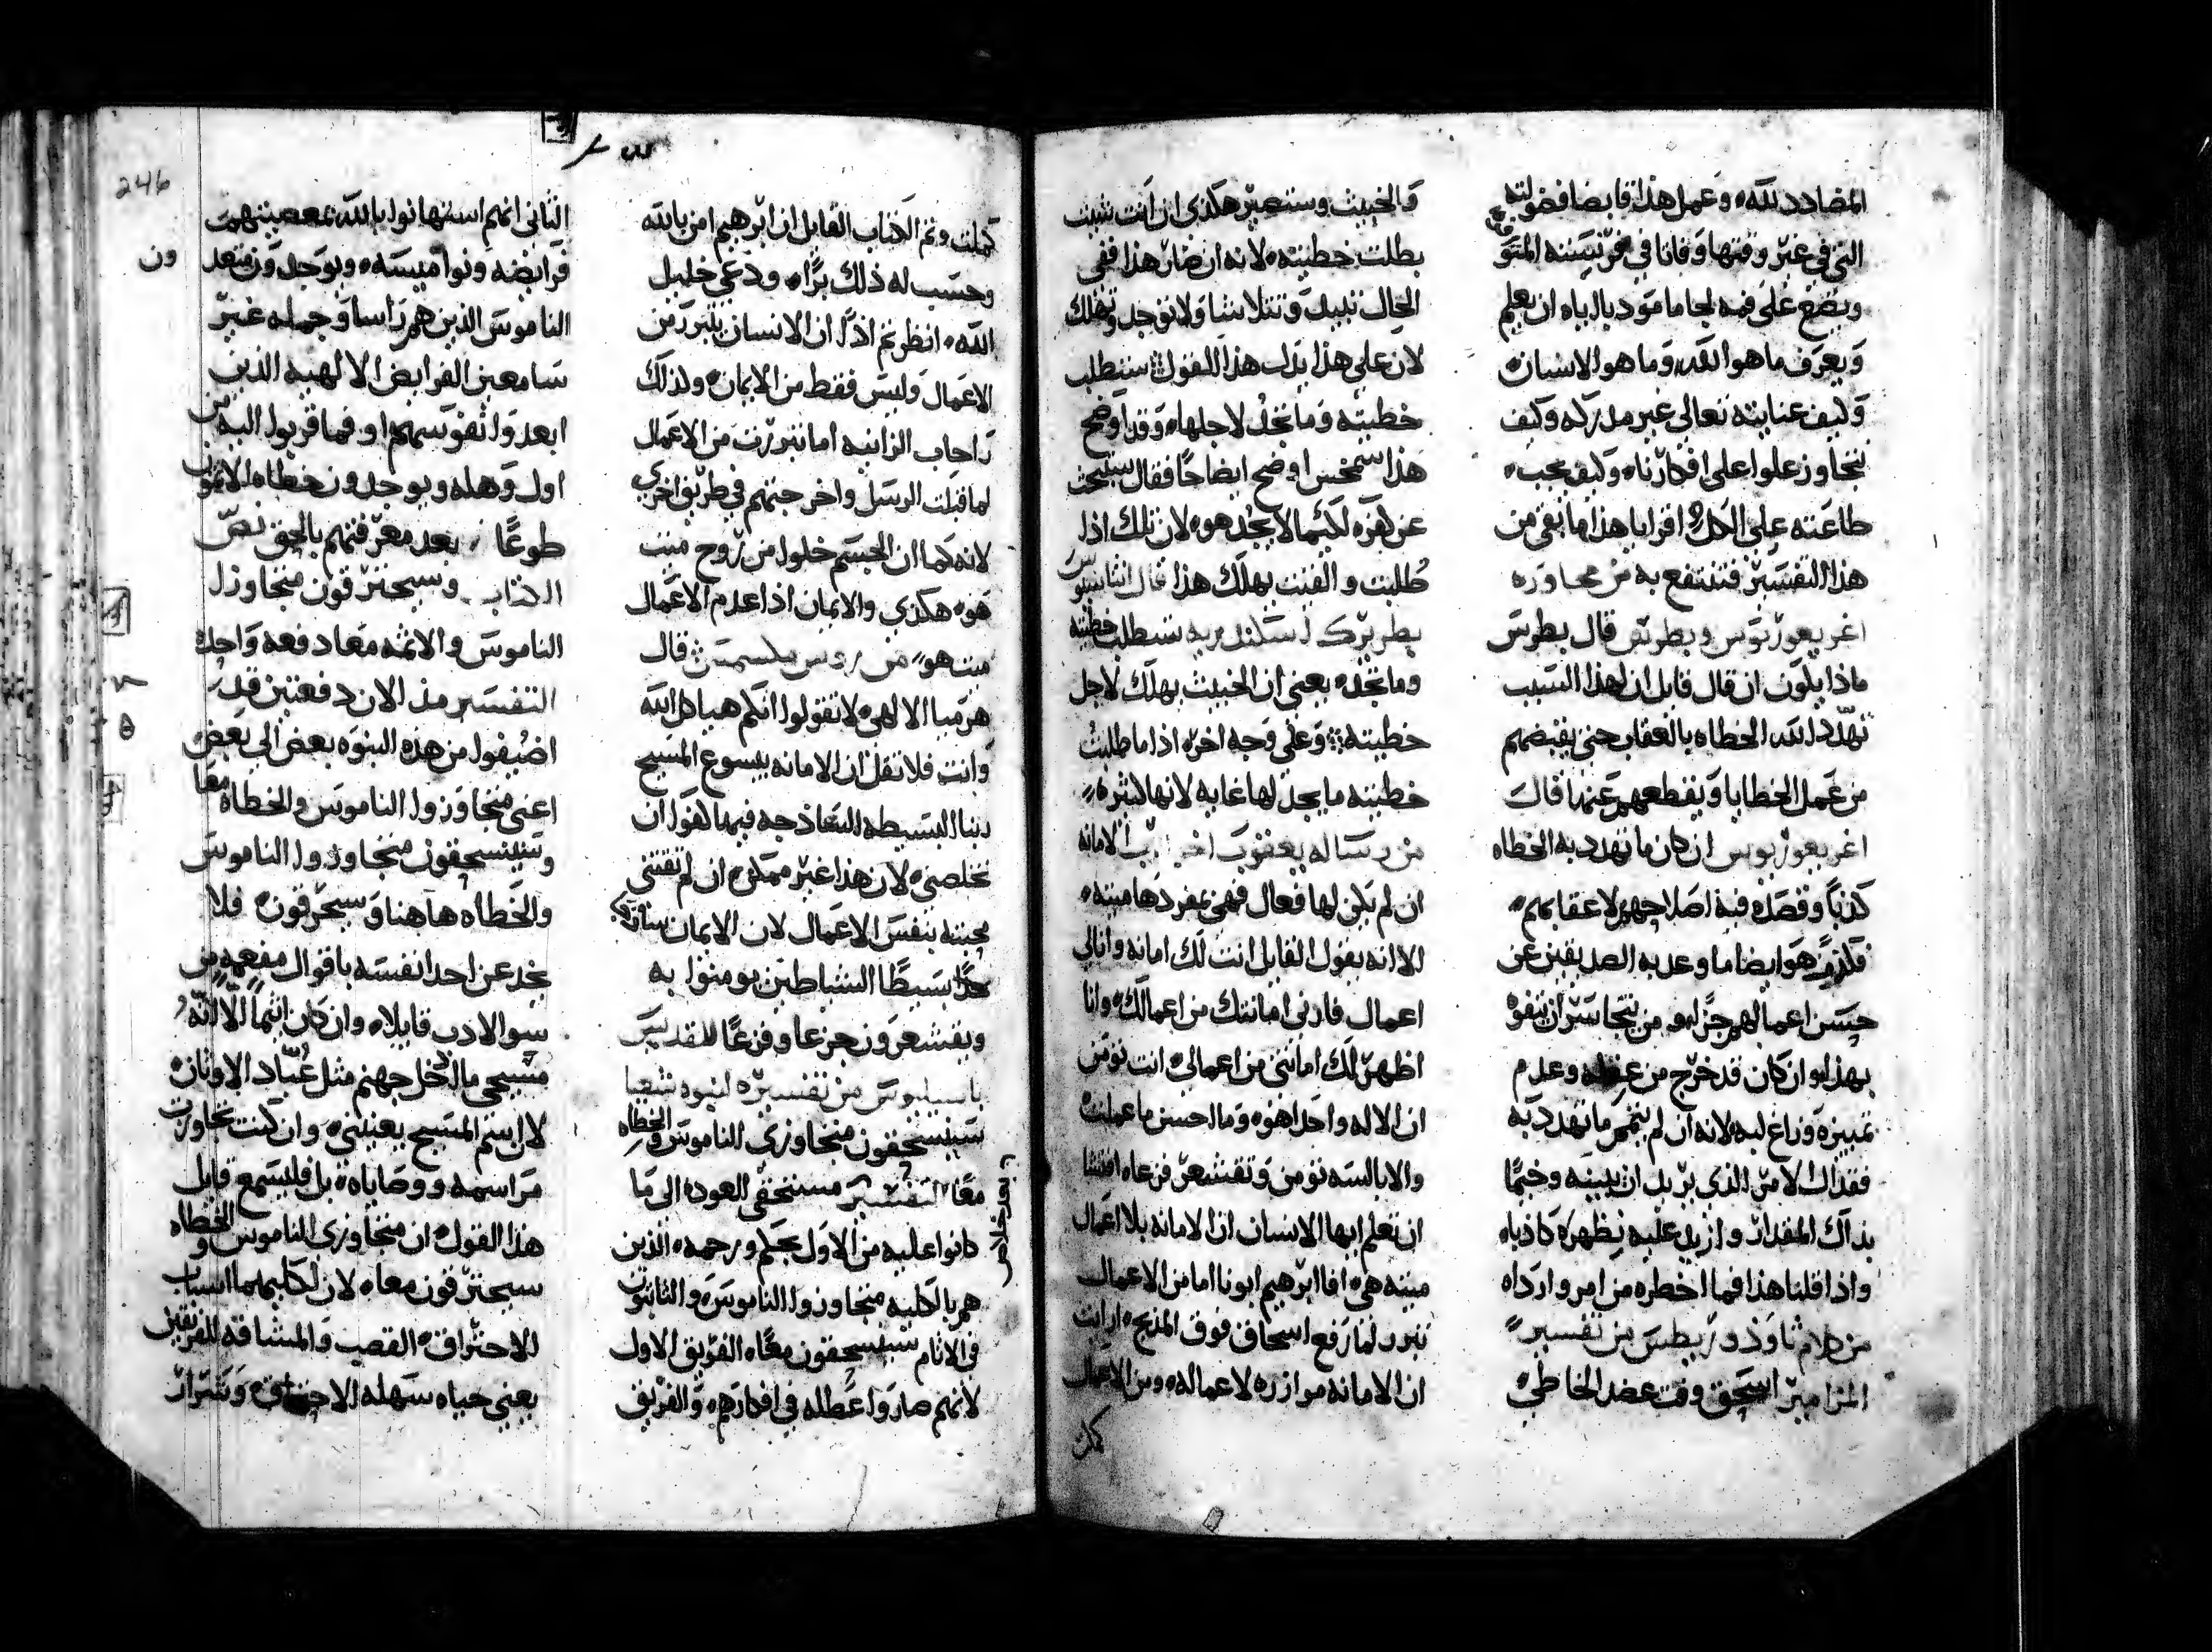 المضادد لله، وعمل هذا قابضا فضولته
التي في غير وقتها وقانا في فرنيسته المتو
ويضع على فمه لجاما مودبا اياه ان يعلم
ويعرف ما هو الله، وما هو الانسان،
وكيف عنايته تعالى غير مدركه وكيف
تتجاوز علوا على افكارنا، وكيف يجب،
طاعته على الكل، اقرايا هذا ما بقي من
هذا التفسير فتنتفع به من محاوره
اغريغوريوس وبطرس قال بطرس
ماذا يكون ان قال قايل ان لهذا السبب
تهدد الله الخطاه بالعقاب حتى يقبضهم
من عمل الخطايا ويقطعهم عنها قال
اغريغوريوس ان كان ما تهدد به الخطاه
كذبا وقصده فيه اصلاحهم لا عقابهم،
فلازم هو ايضا ما وعد به الصديقين عن
حسن اعمالهم جزاهم من يتجاسر ان يتفوه
بهذا، وان كان قد خرج من عقله وعدم
تمييزه وزاغ لبه لانه ان لم يتمم ما تهدد به
فقد اك الامر الذي يريد ان يبينه وختما
بذاك المقدار وازيد عليه نظهره كاذبا،
واذا قلنا هذا فما اخطره من امر واردا،
من كلام ثاوذوريطس من تفسير
المزامير اسحق وقت عضد الخاطي،
والخبيث وستصير هكذي ان انت شيت
بطلت خطيته، لانه ان صار هذا ففي
الحال تبيد وتتلاشا ولا توجد وتهلك
لان على هذا يدل هذا القول ستطلب
خطيته وما تجد لاجلها، وقد اوضح
هذا سمخس اوضح ايضاحا فقال ستبحث
عن كفره لكيما لا يجد هو، لان تلك اذا
طلبت والفنت يهلك هذا قال اثناسيوس
بطريرك اسكندريه ستطلب خطيته
وما تجد، يعني ان الخبيث يهلك لاجل
خطيته، وعلى وجه اخر، اذا ما طلبت
خطيته ما يجد لها غايه لانها كثره،
من رساله يعقوب اخي الرب الامانه
ان لم يكن لها فعال فهي بمفردها ميته،
الا انه يقول القايل انت لك امانه وانا لي
اعمال فارني امانتك من اعمالك، وانا
اظهر لك امانتي من اعمالي، انت تومن
ان الاله واحدا هو، وما احسن ما عملت
والابالسه تومن وتقشعر فزعا، افتشا
ان تعلم ايها الانسان ان الامانه بلا اعمال
ميته هي، افا ابرهيم ابونا اما من الاعمال
تبرر لما رفع اسحاق فوق المذبح، ارايت
ان الامانه موازره لاعماله، ومن الاعمال
كملت
كملت وتم الكتاب القايل ان ابرهيم امن بالله
وحسب له ذلك برا، ودعي خليل
الله، انظرتم اذا ان الانسان يتبرر من
الاعمال وليس فقط من الايمان، وكذلك
راحاب الزانيه اما تبررت من الاعمال
لما قبلت الرسل واخرجتهم في طريق اخري
لانه كما ان الجسم خلوا من روح ميت
هو، هكذي والايمان اذا عدم الاعمال
ميت هو، من مكسيمس قال
هرميا الالهي لا تقولوا انكم هيكل الله
وانت فلا تقل ان الامانه بيسوع المسيح
ربنا البسيطه الساذجه فيها كفوا ان
تخلصني، لان هذا غير ممكن، ان لم تقتني
محبته بنفس الاعمال لان الايمان ساذجا
جدا بسيطا الشياطين يومنوا به
ويقشعرون جزعا وفزعا للقديس
باسيليوس من تفسيره لنبوه شعيا
سينسحقون متجاوزي الناموس والخطاه
معا التفسير مستحقي العوده الى ما
كانوا عليه من الاول بحكم ورحمه، الذين
هم بالكليه متجاوزوا الناموس، والثابتون
في الاثام سينسحقون معا، الفريق الاول
لانهم صاروا عطله في افكارهم، والفريق
الثاني انهم استهانوا بالله بمعصيتهم
فرايضه ونواميسه، ويوجد ون متعد
ون
الناموس الذين هم راسا وجمله غير
سامعين الفرايض الالهيه الذين
ابعدوا نفوسهم او فما قربوا اليه من
اول وهله ويوجدون خطاه الاثمون
طوعا، بعد معرفتهم بالحق نص
الكتاب وسيحترقون متجاوزا
الناموس والاثمه معا دفعه واحده
التفسير مذ الان دفعتين قد
اضيفوا من هذه النبوه بعض الى بعض
اعني متجاوزوا الناموس والخطاه معا
وسينسحقون متجاوزوا الناموس
والخطاه هاهنا وسيحرقون، فلا
يخدعن احدا نفسه باقوال مفعمه من
سو الادب قايلا، وان كان اثيما الا انه
مسيحي ما ادخل جهنم مثل عباد الاوثان،
لان اسم المسيح يعينني، وان كنت تجاوزت
مراسمه ووصاياه، بل فليسمع قايل
هذا القول، ان متجاوزي الناموس والخطاه
سيحترقون معا، لان لكليهما اسباب
الاحتراق، القصب والمشاقه للفريقين
يعني حياه سهله الاحتراق، وشرار
246